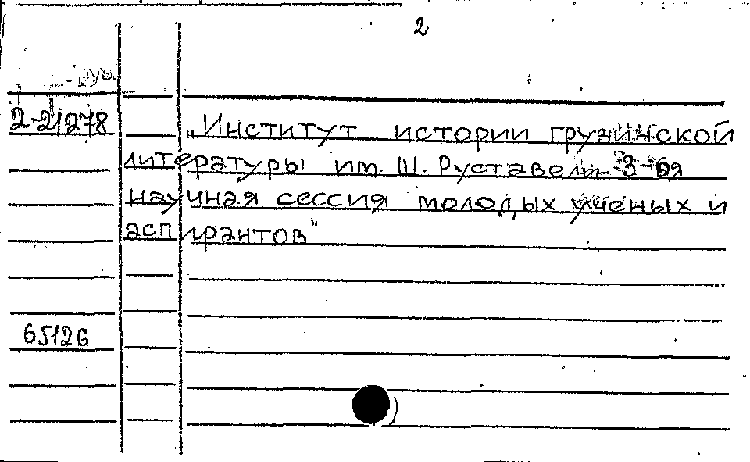 2
2-21278
„Институт истории грузинской
литературы им. Ш. Руставели 3-я
научная сессия молодых ученых и
аспирантов"
65126